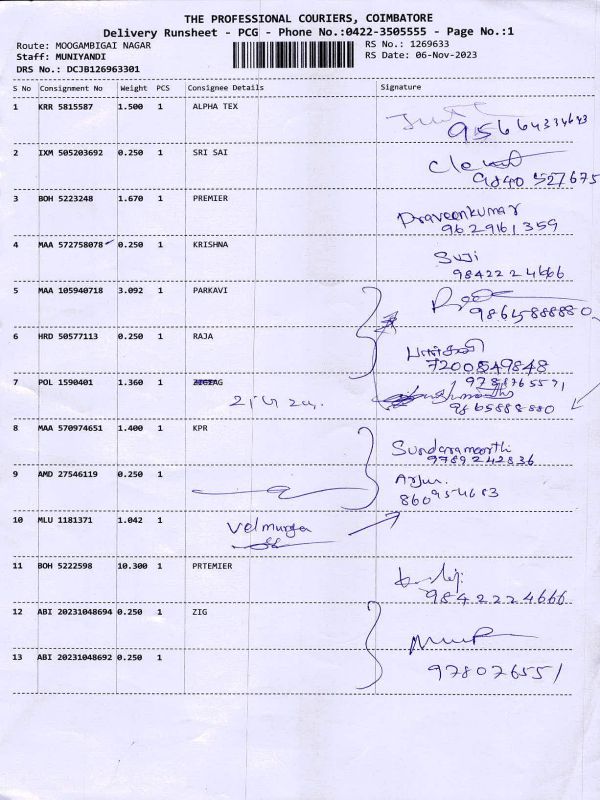 THE PROFESSIONAL COURIERS, COIMBATORE
Delivery Runsheet - PCG - Phone No.:0422-3505555 - Page No.:1
Route: MOOGAMBIGAI NAGAR RS No.: 1269633
Staff: MUNIYANDI RS Date: 06-Nov-2023
DRS No.: DCJB126963301
S No Consignment No Weight PCS Consignee Details Signature
1 KRR 5815587 1.500 1 ALPHA TEX
2 IXM 505203692 0.250 1 SRI SAI
9840 527675
3 BOH 5223248 1.670 1 PREMIER
Praveenkumar
9629161359
4 MAA 572758078 0.250 1 KRISHNA
Suji
9842224666
5 MAA 105940718 3.092 1 PARKAVI
9865888880
6 HRD 50577113 0.250 1 RAJA
7200549848
7 POL 1590401 1.360 1
9865888880
8 MAA 570974651 1.400 1 KPR
Sundaramoorthi
9789242836
9 AMD 27546119 0.250 1
Arjun.
10 MLU 1181371 1.042 1
11 BOH 5222598 10.300 1 PRTEMIER
9842224666
12 ABI 20231048694 0.250 1 ZIG
13 ABI 20231048692 0.250 1
978076551